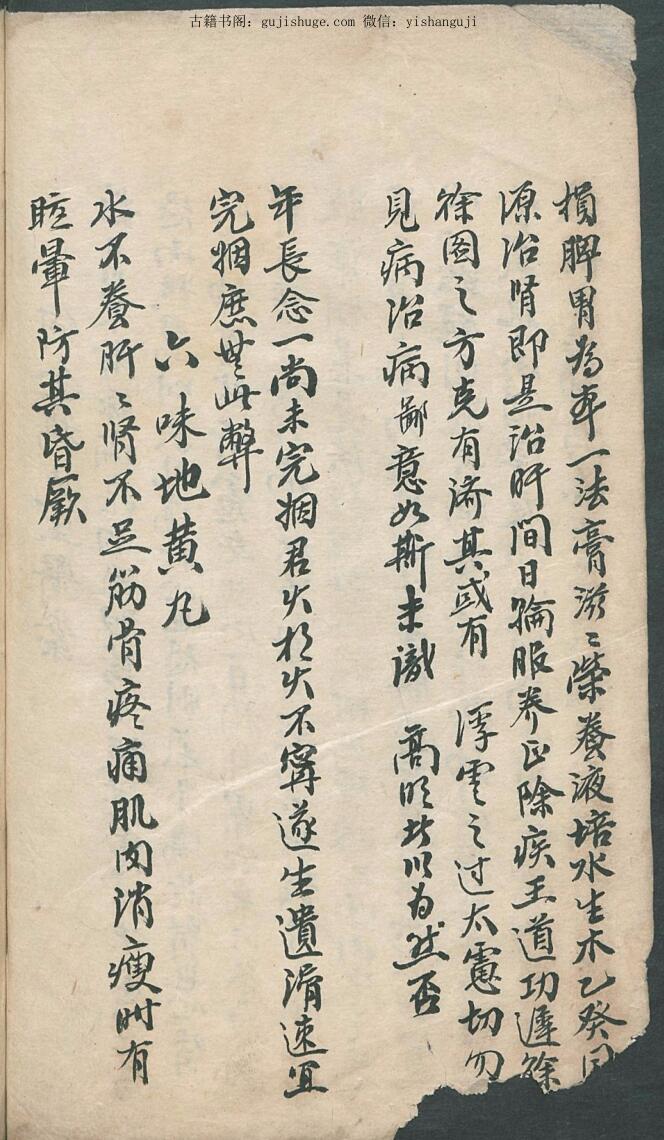 古籍书阁：gujishuge.com 微信：yishanguji
損脾胃為本一法膏滋〻榮養液培水生木乙癸同
源治肾即是治肝間日輪服养正除疾王道功遲徐
徐圖之方克有济其或有 浮雲之过太 切勿
見病治病鄙意如斯未識 高明 以为然否
年長念一尚未完姻君火相火不寧遂生遺滑速宜
完姻庶無此弊
六味地黄丸
水不養肝〻肾不足筋骨疼痛肌肉消瘦时有
眩暈防其昏厥